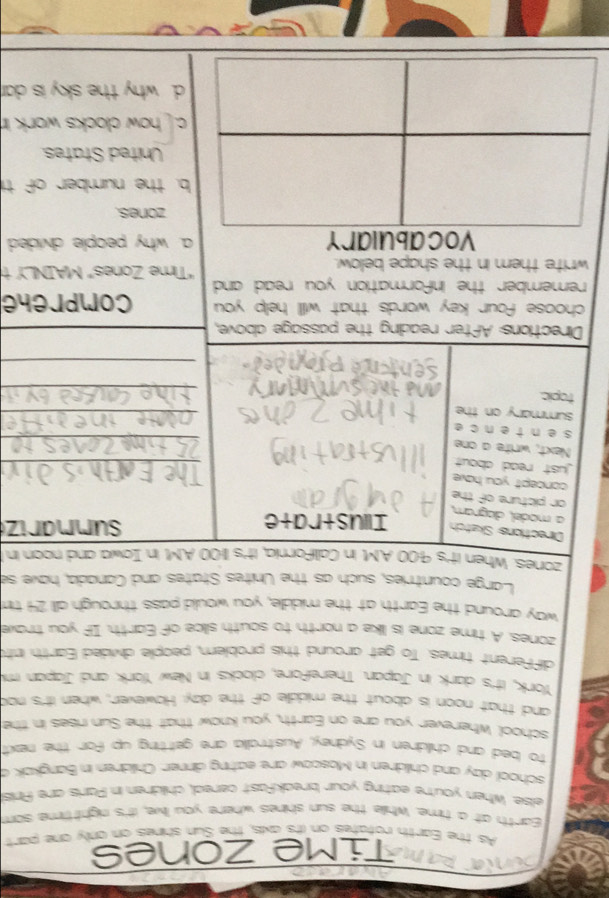 TIME ZONES
As the Earth rotates on its axis, the Sun shines on only one part
Earth at a time. While the sun shines where you live, it's nighttime som
else. When you're eating your breakfast cereal, children in Paris are finish
school day and children in Moscow are eating dinner. Children in Bangkok
to bed and children in Sydney, Australia are getting up for the next
school. Wherever you are on Earth, you know that the Sun rises in the
and that noon is about the middle of the day. However, when it's noo
York, it's dark in Japan. Therefore, clocks in New York and Japan mu
different times. To get around this problem, people divided Earth into
zones. A time zone is like a north to south slice of Earth. If you trave
way around the Earth at the middle, you would pass through all 24 tim
Large countries, such as the Unites States and Canada, have se
zones. When it's 9:00 A.M. in California, it's 11:00 A.M. in Iowa and noon in
Directions: Sketch
a model, diagram,
or picture of the
concept you have
just read about.
Next, write a one
sentence
summary on the
topic.
Illustrate
A diagram
illustrating
time zones
and the summary
sentence provided.
Summariz
The Earth is div
25 time zones to
time caused by
Directions: After reading the passage above,
choose four key words that will help you
remember the information you read and
write them in the shape below.
Vocabulary
Comprehe
"Time Zones" MAINLY t
a. why people divided
zones.
b. the number of ti
United States.
c. how clocks work
d. why the sky is dar